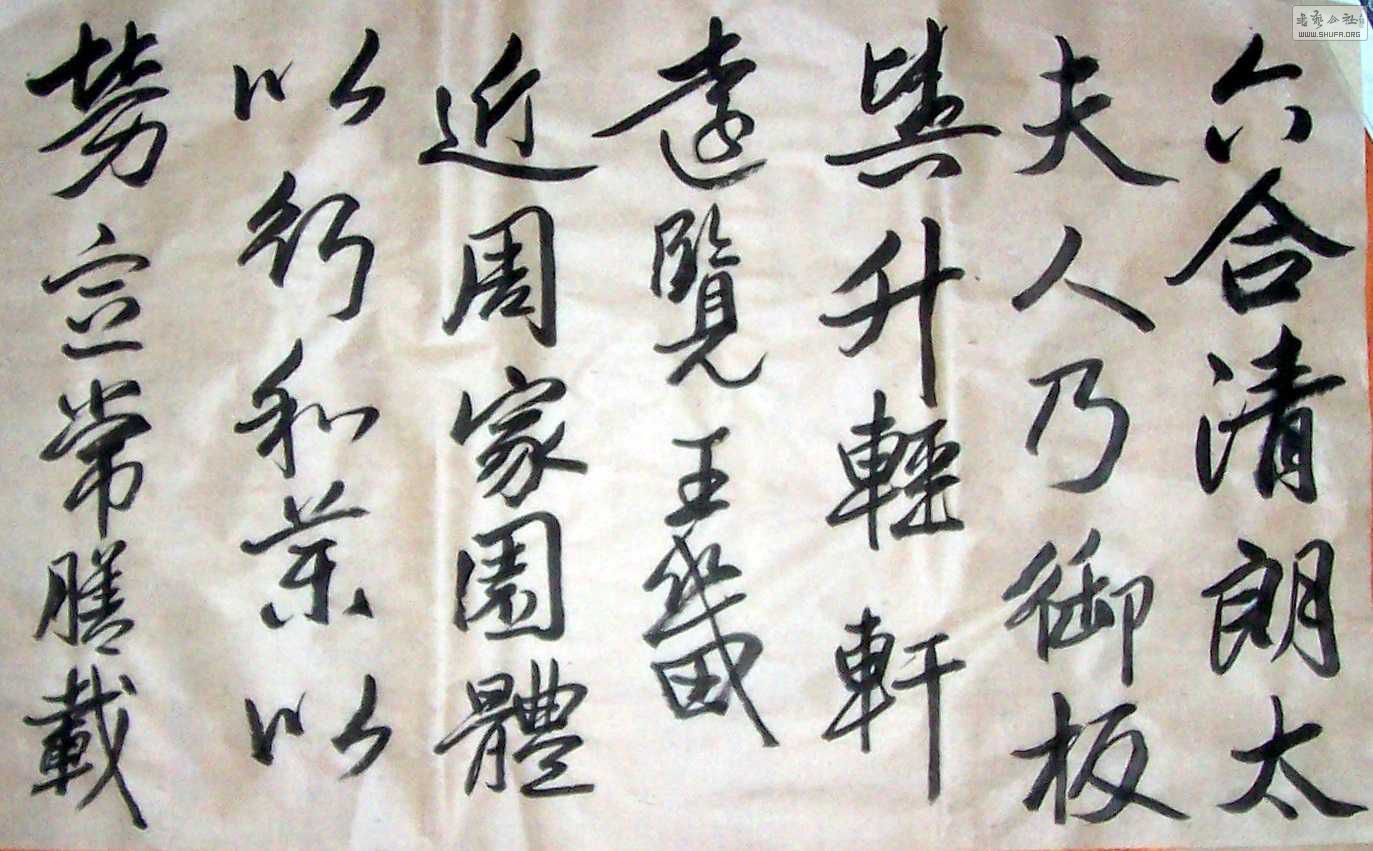 六合清朗太
夫人乃御板
輿升輕軒
遠覽王畿
近周家園體
以行和藥以
勞宣常膳載
书艺公社
WWW.SHUFA.ORG